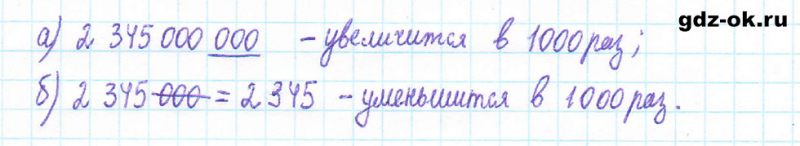 gdz-ok.ru
а) 2 345 000 000 – увеличится в 1000 раз;
б) 2 345 000 = 2 345 – уменьшится в 1000 раз.